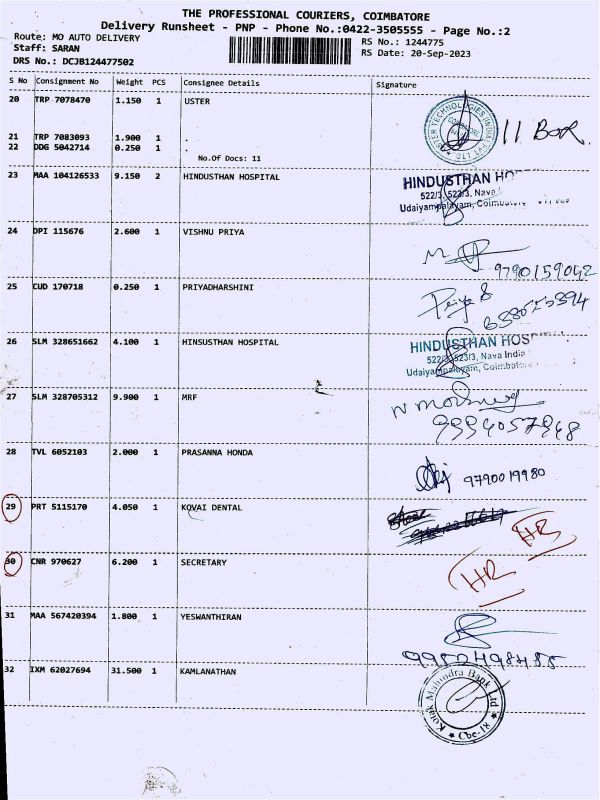 THE PROFESSIONAL COURIERS, COIMBATORE
Delivery Runsheet - PNP - Phone No.:0422-3505555 - Page No.:2
Route: MO AUTO DELIVERY
RS No.: 1244775
Staff: SARAN
RS Date: 20-Sep-2023
DRS No.: DCJB124477502
S No Consignment No Weight PCS Consignee Details Signature
20 TRP 7078470 1.150 1 USTER
11 Box.
21 TRP 7083093 1.900 1 .
22 DDG 5042714 0.250 1 .
No.Of Docs: 11
23 MAA 104126533 9.150 2 HINDUSTHAN HOSPITAL
HINDUSTHAN HO
522/3, 523/3, Nava
Udaiyampalayam, Coimbatore
24 DPI 115676 2.600 1 VISHNU PRIYA
9790159042
25 CUD 170718 0.250 1 PRIYADHARSHINI
Priya S
26 SLM 328651662 4.100 1 HINSUSTHAN HOSPITAL
HINDUSTHAN HOS
522/3, 523/3, Nava India
Udaiyampalayam, Coimbatore
27 SLM 328705312 9.900 1 MRF
9994057948
28 TVL 6052103 2.000 1 PRASANNA HONDA
9790019980
29 PRT 5115170 4.050 1 KOVAI DENTAL
HR
30 CNR 970627 6.200 1 SECRETARY
HR
31 MAA 567420394 1.800 1 YESWANTHIRAN
9952498485
32 IXM 62027694 31.500 1 KAMLANATHAN
Kotak Mahindra Bank Ltd
Cbe-18